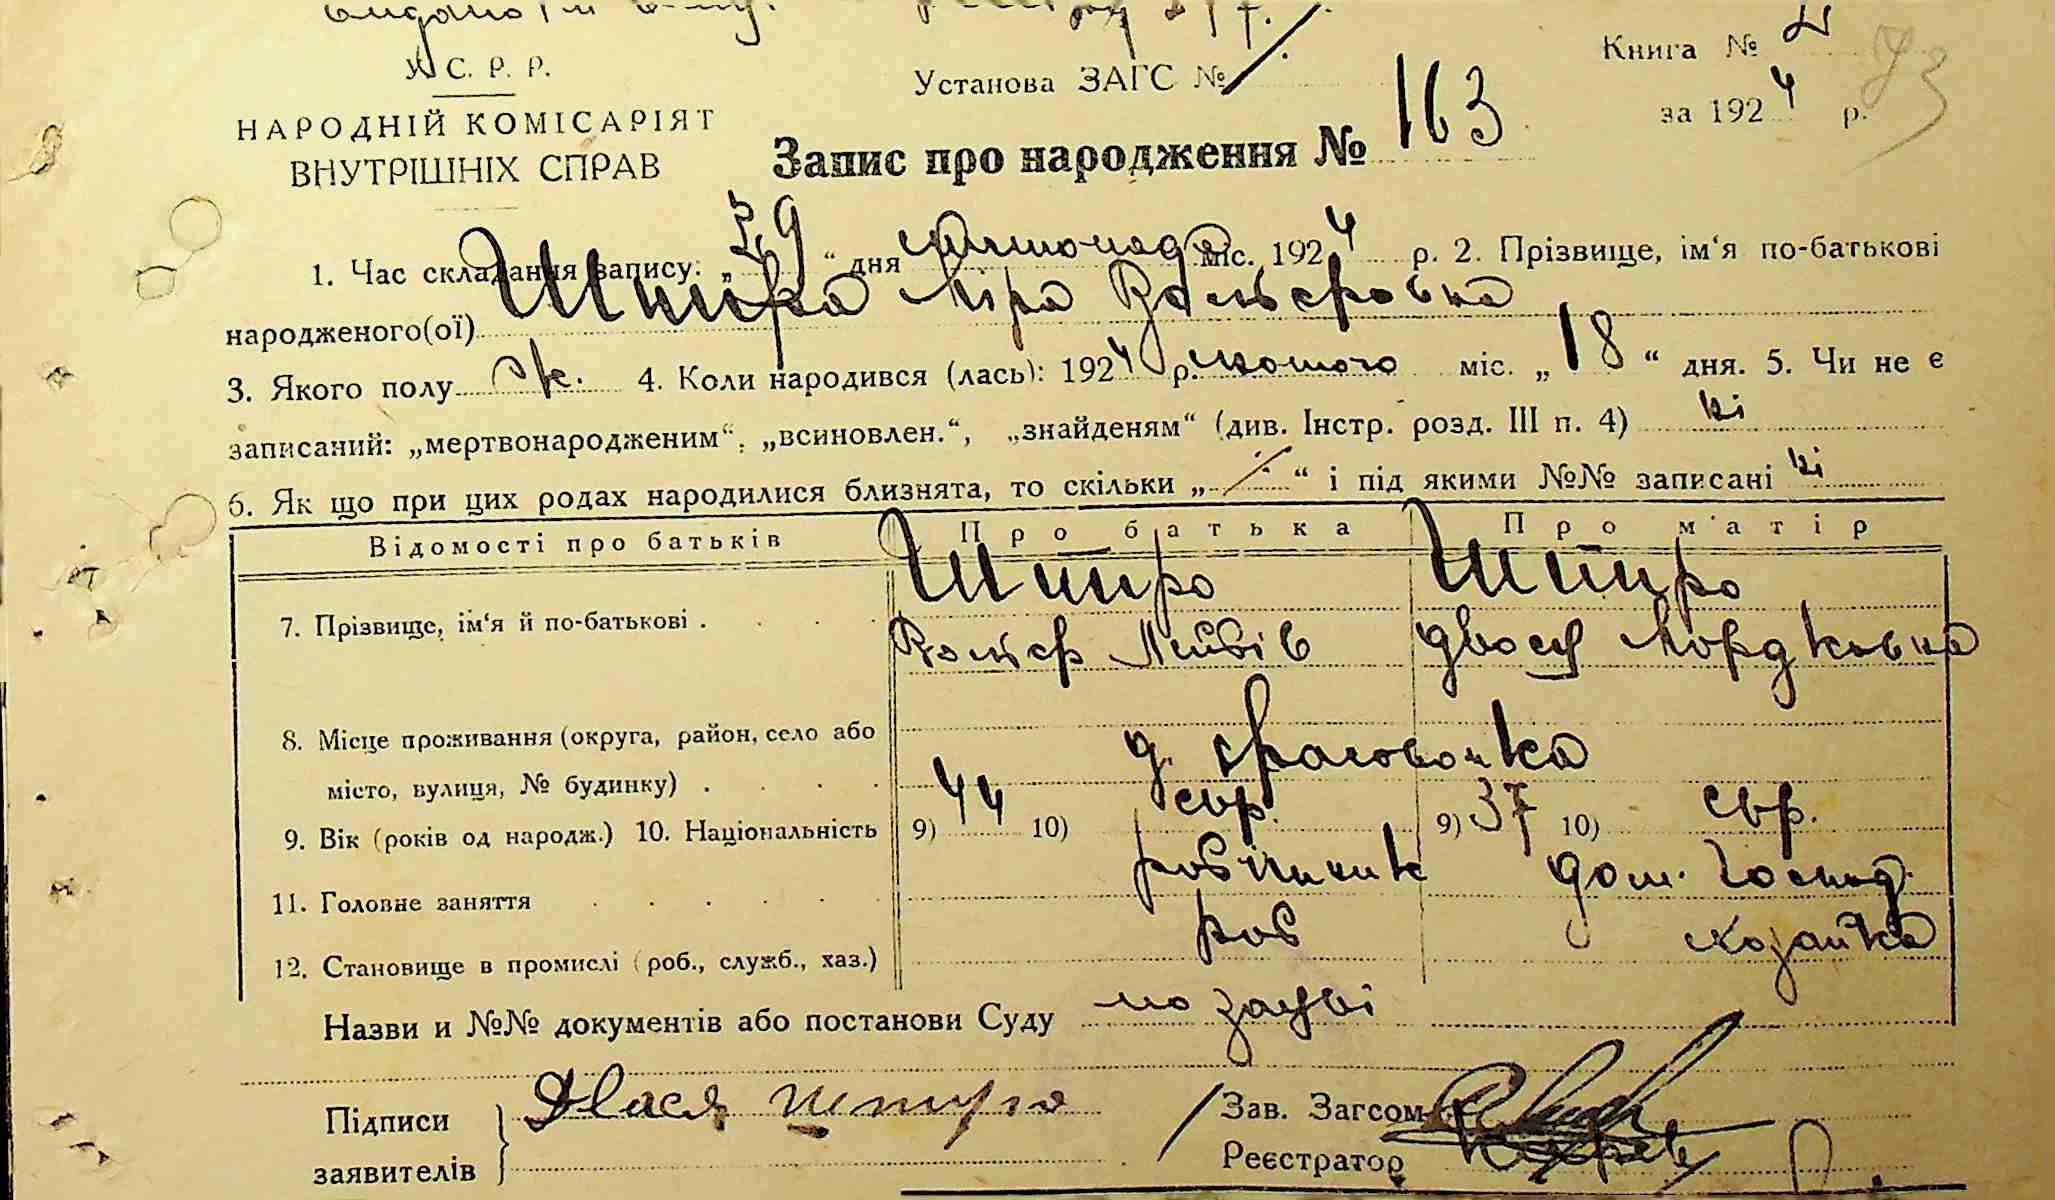 У. С. Р. Р.
НАРОДНІЙ КОМІСАРІЯТ
ВНУТРІШНІХ СПРАВ
Установа ЗАГС №
Книга № 2
за 1924 р.
73
Запис про народження № 163
1. Час складання запису: „29“ дня листопада міс. 1924 р. 2. Прізвище, ім‘я по-батькові
народженого(ої) Шпира Міра Вольфовна
3. Якого полу ж. 4. Коли народився (лась): 1924 р. лютого міс. „18“ дня. 5. Чи не є
записаний: „мертвонародженим“, „всиновлен.“, „знайденям“ (див. Інстр. розд. III п. 4) ні
6. Як що при цих родах народилися близнята, то скільки „ “ і під якими №№ записані ні
Відомості про батьків Про батька Про м'атір
7. Прізвище, ім‘я й по-батькові . Шпиро Шпиро
Вольф Лейбів Двося Мордковна
8. Місце проживання (округа, район, село або
місто, вулиця, № будинку) .
9. Вік (років од народж.) 10. Національність 9) 44 10) євр. 9) 37 10) євр.
11. Головне заняття робітник дом. господ.
12. Становище в промислі (роб., служб., хаз.) роб хозяйка
Назви и №№ документів або постанови Суду по заяві
Підписи
заявителів
Шпиро
Зав. Загсом
Реєстратор